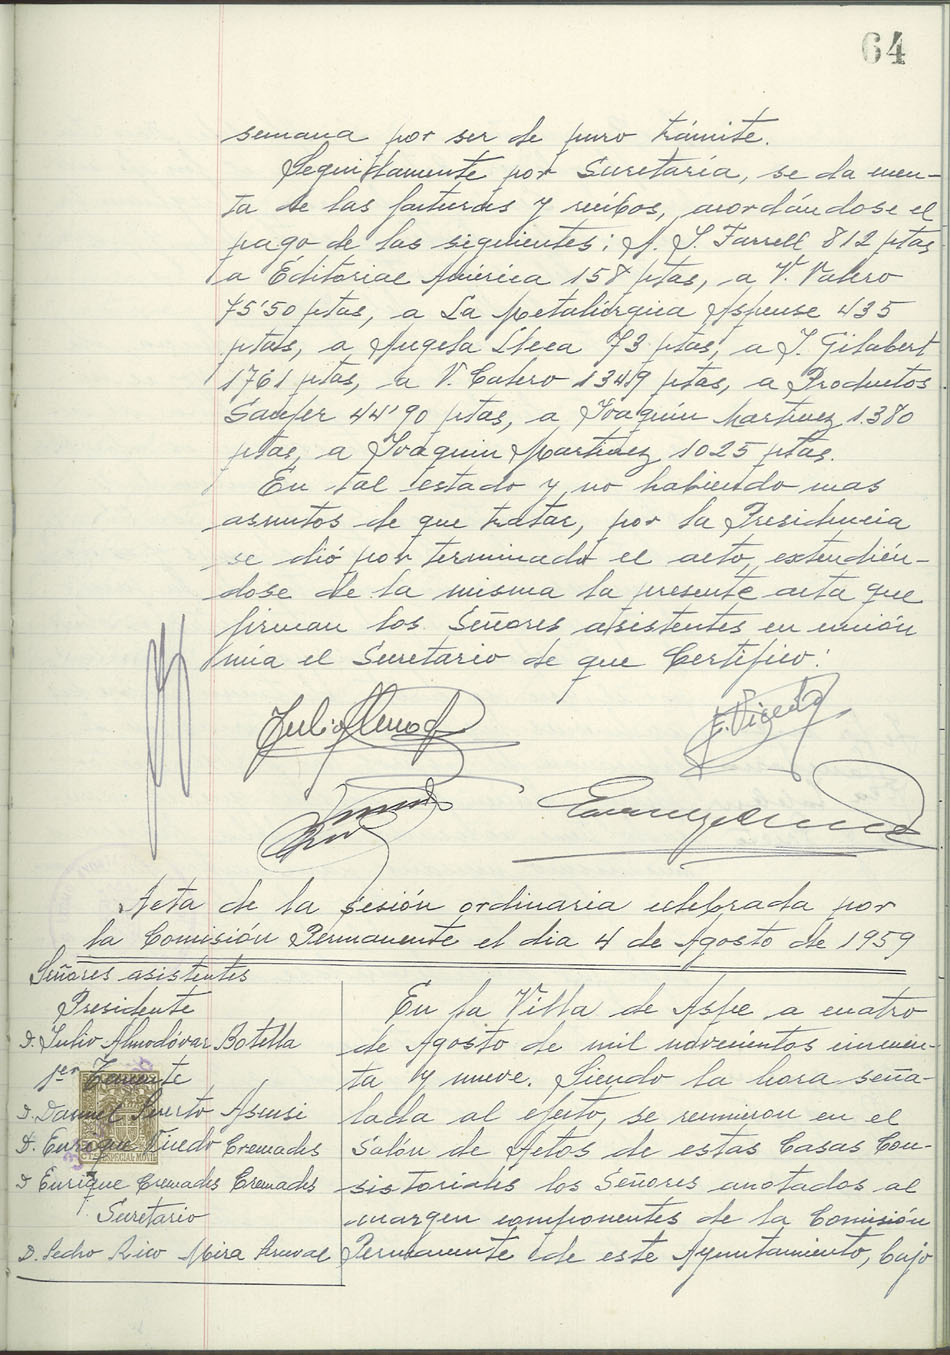 64
semana por ser de puro trámite.
Seguidamente por Secretaría, se da cuen-
ta de las facturas y recibos, acordándose el
pago de las siguientes: A. S. Farrell 812 ptas
a Editorial América 158 ptas, a V. Valero
75'50 ptas, a La Metalúrgica Aspense 435
ptas, a Angela Lleca 73 ptas, a J. Gilabert
1761 ptas, a V. Calero 13419 ptas, a Productos
44'90 ptas, a Joaquín Martinez 1.380
ptas, a Joaquin Martinez 1025 ptas.
En tal estado y no habiendo mas
asuntos de que tratar, por la Presidencia
se dió por terminado el acto, extendién-
dose de la misma la presente acta que
firman los Señores asistentes en unión
mía el Secretario de que Certifico:
Julio Almod
E. Vicedo
Acta de la sesión ordinaria celebrada por
la Comisión Permanente el dia 4 de Agosto de 1959
Señores asistentes
Presidente
D. Julio Almodóvar Botella
1er Teniente
D. Daniel Puerto Asensi
D. Enrique Vicedo Cremades
D Enrique Cremades Cremades
Secretario
D. Pedro Rico Mira
ESPECIAL MÓVIL
En la Villa de Aspe a cuatro
de Agosto de mil novecientos cincuen-
ta y nueve. Siendo la hora seña-
lada al efecto, se reunieron en el
Salón de Actos de estas Casas Con-
sistoriales los Señores anotados al
margen componentes de la Comisión
Permanente de este Ayuntamiento, bajo